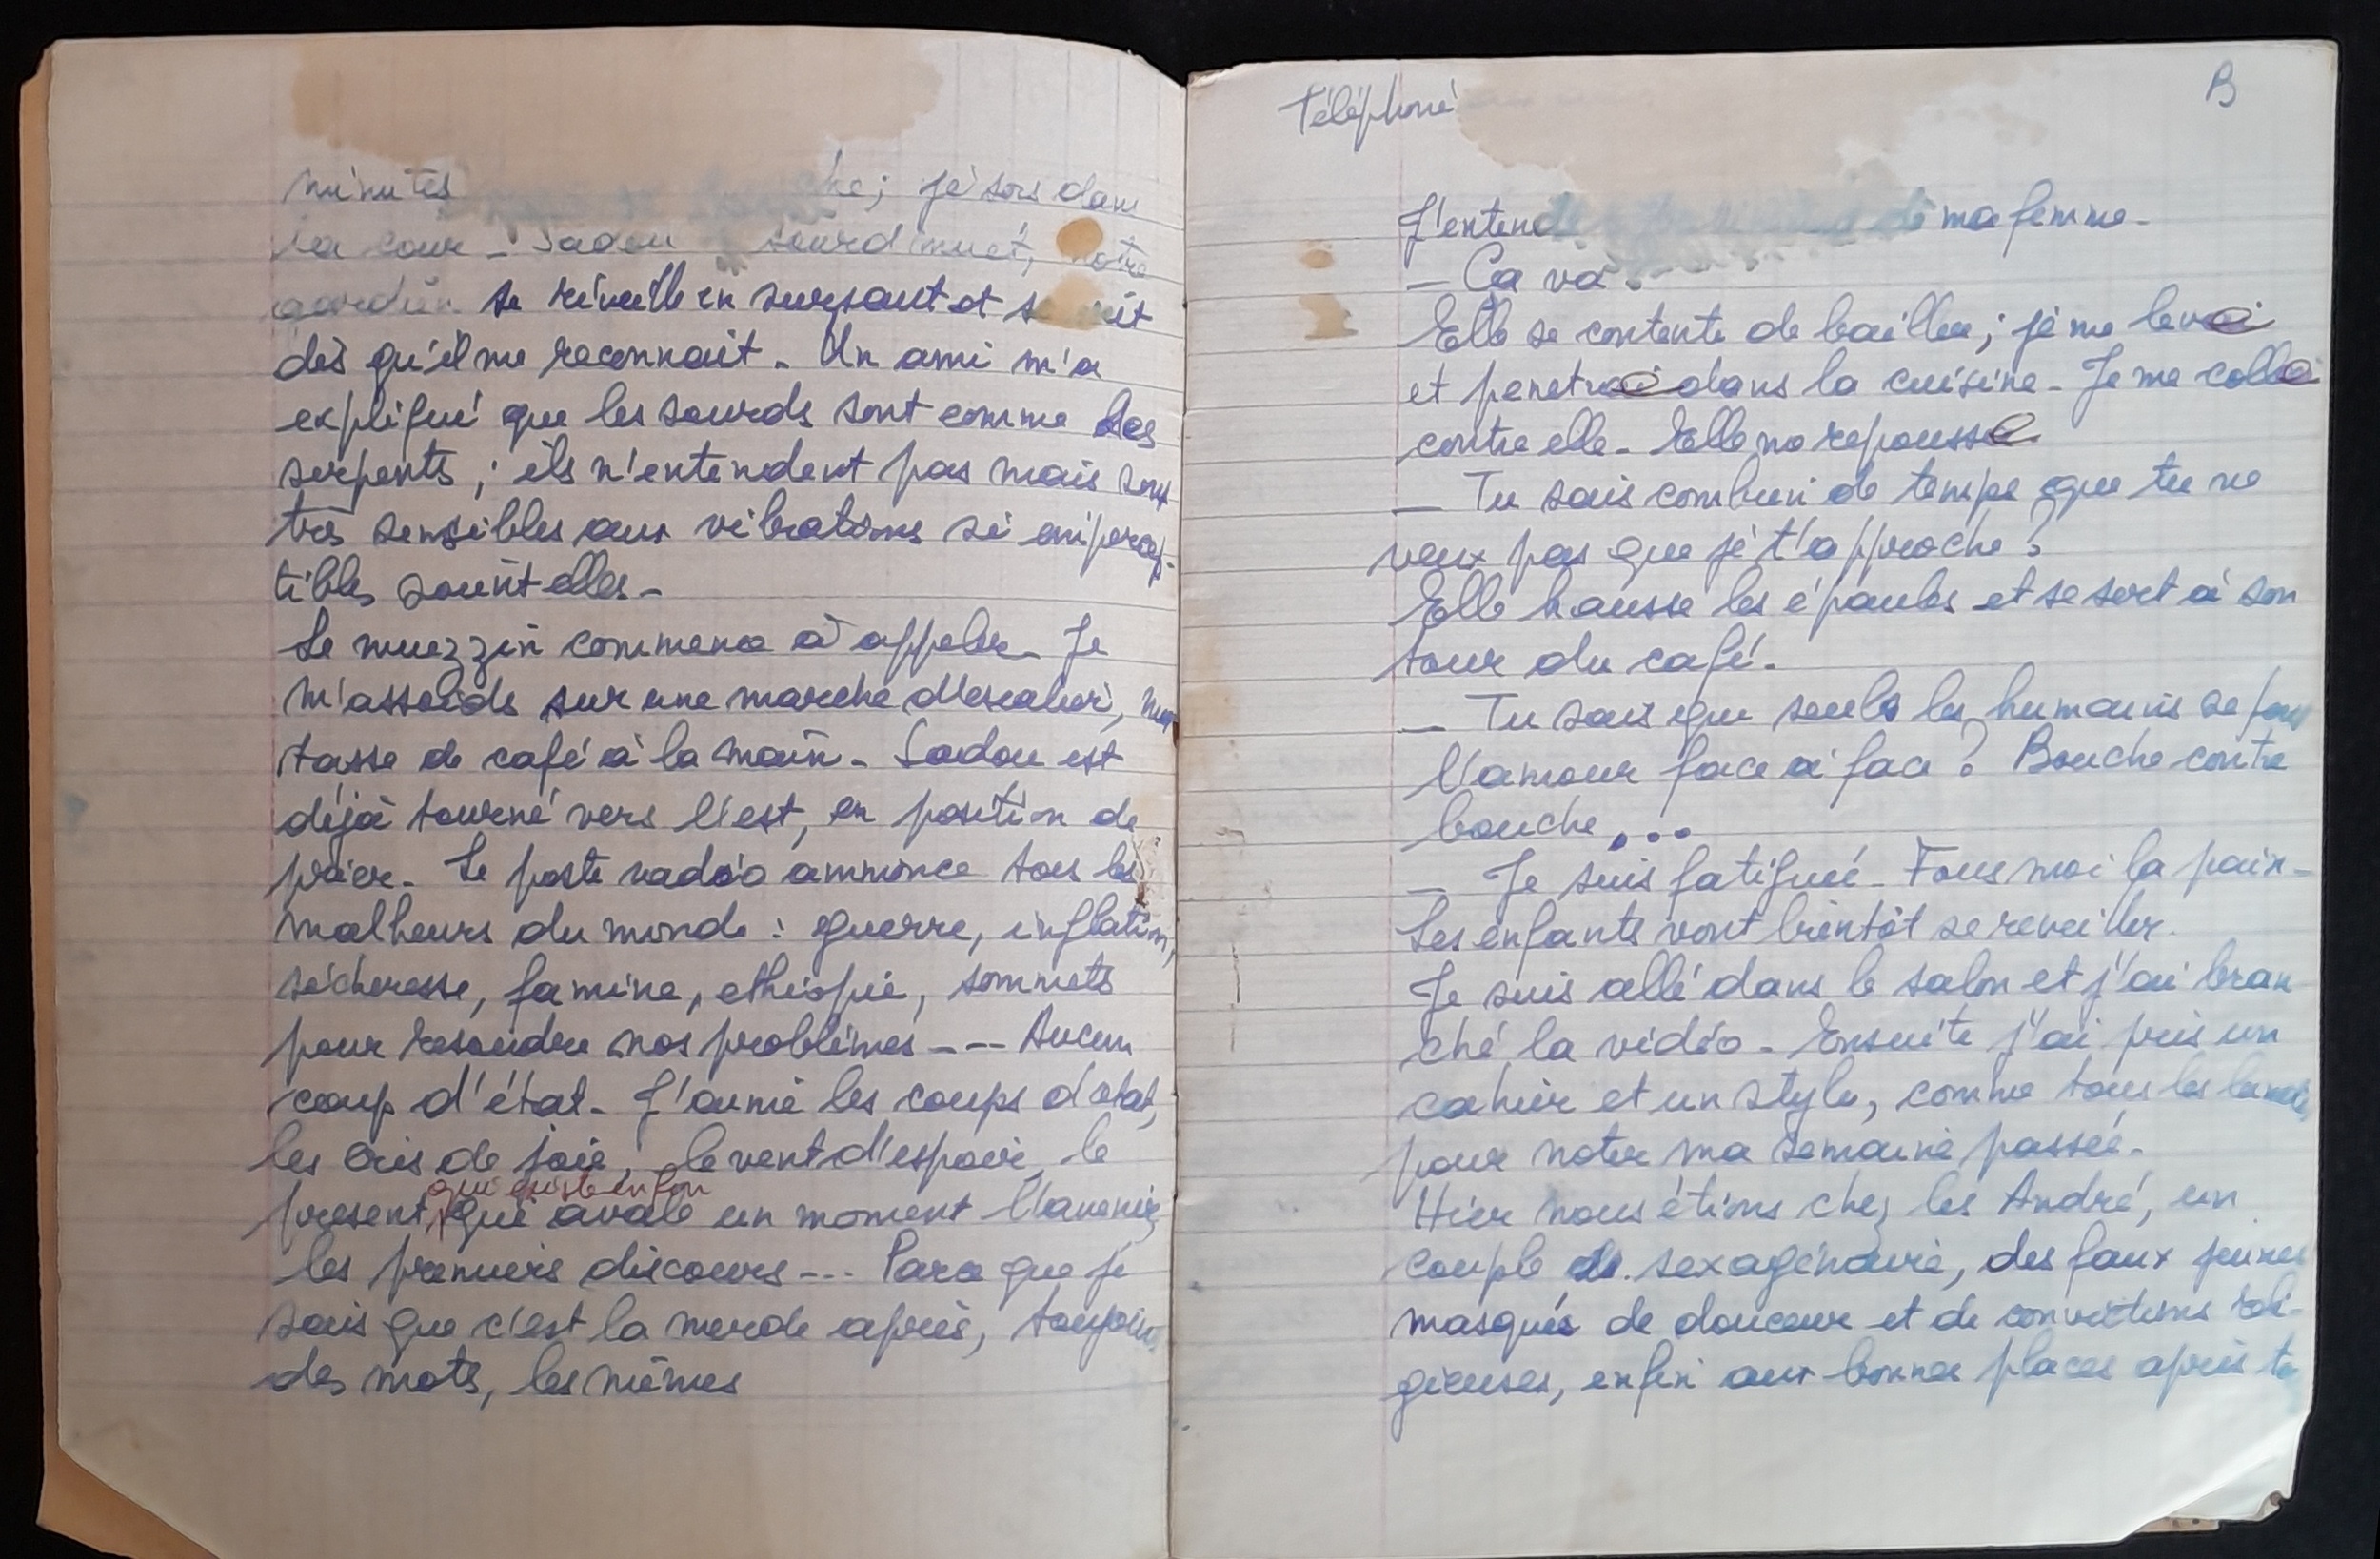 minutes
je sors dans
la cour - Sadou sourd muet, notre
gardien se réveille en sursaut et
dès qu'il me reconnait - Un ami m'a
expliqué que les sourds sont comme les
serpents ; ils n'entendent pas mais sont
très sensibles aux vibrations si impercep-
tibles soient elles -
Le muezzin commence à appeler - Je
m'assoids sur une marche d'escalier, ma
tasse de café à la main - Sadou est
déjà tourné vers l'est, en position de
prier - Le poste radio annonce tous les
malheurs du monde : guerre, inflation,
sécheresse, famine, ethiopie, sommets
pour resoudre nos problèmes --- Aucun
coup d'état - J'aime les coups d'état,
les cris de joie, le vent d'espoir, le
qui existe enfin
present, qui avale un moment l'avenir,
les premiers discours --- Parce que je
sais que c'est la merde après, toujours
des mots, les mêmes
Téléphoné
B
J'entends de ma femme -
- Ca va.
Elle se contente de bailler ; je me leva
et penetra dans la cuisine - Je me colla
contre elle - Elle me repousse
- Tu sais combien de temps que tu ne
veux pas que je t'approche ?
Elle hausse les épaules et se sert à son
tour du café.
- Tu sais que seuls les humains se font
l'amour face à face ? Bouche contre
bouche, ...
- Je suis fatiguée - Fous moi la paix -
Les enfants vont bientôt se reveiller.
Je suis allé dans le salon et j'ai bran
ché la vidéo - Ensuite j'ai pris un
cahier et un stylo, comme tous les lundis,
pour noter ma semaine passée.
Hier nous étions chez les André, un
couple de sexagénaire, des faux jeunes
masqués de douceur et de convictions reli-
gieuses, enfin aux bonnes places après